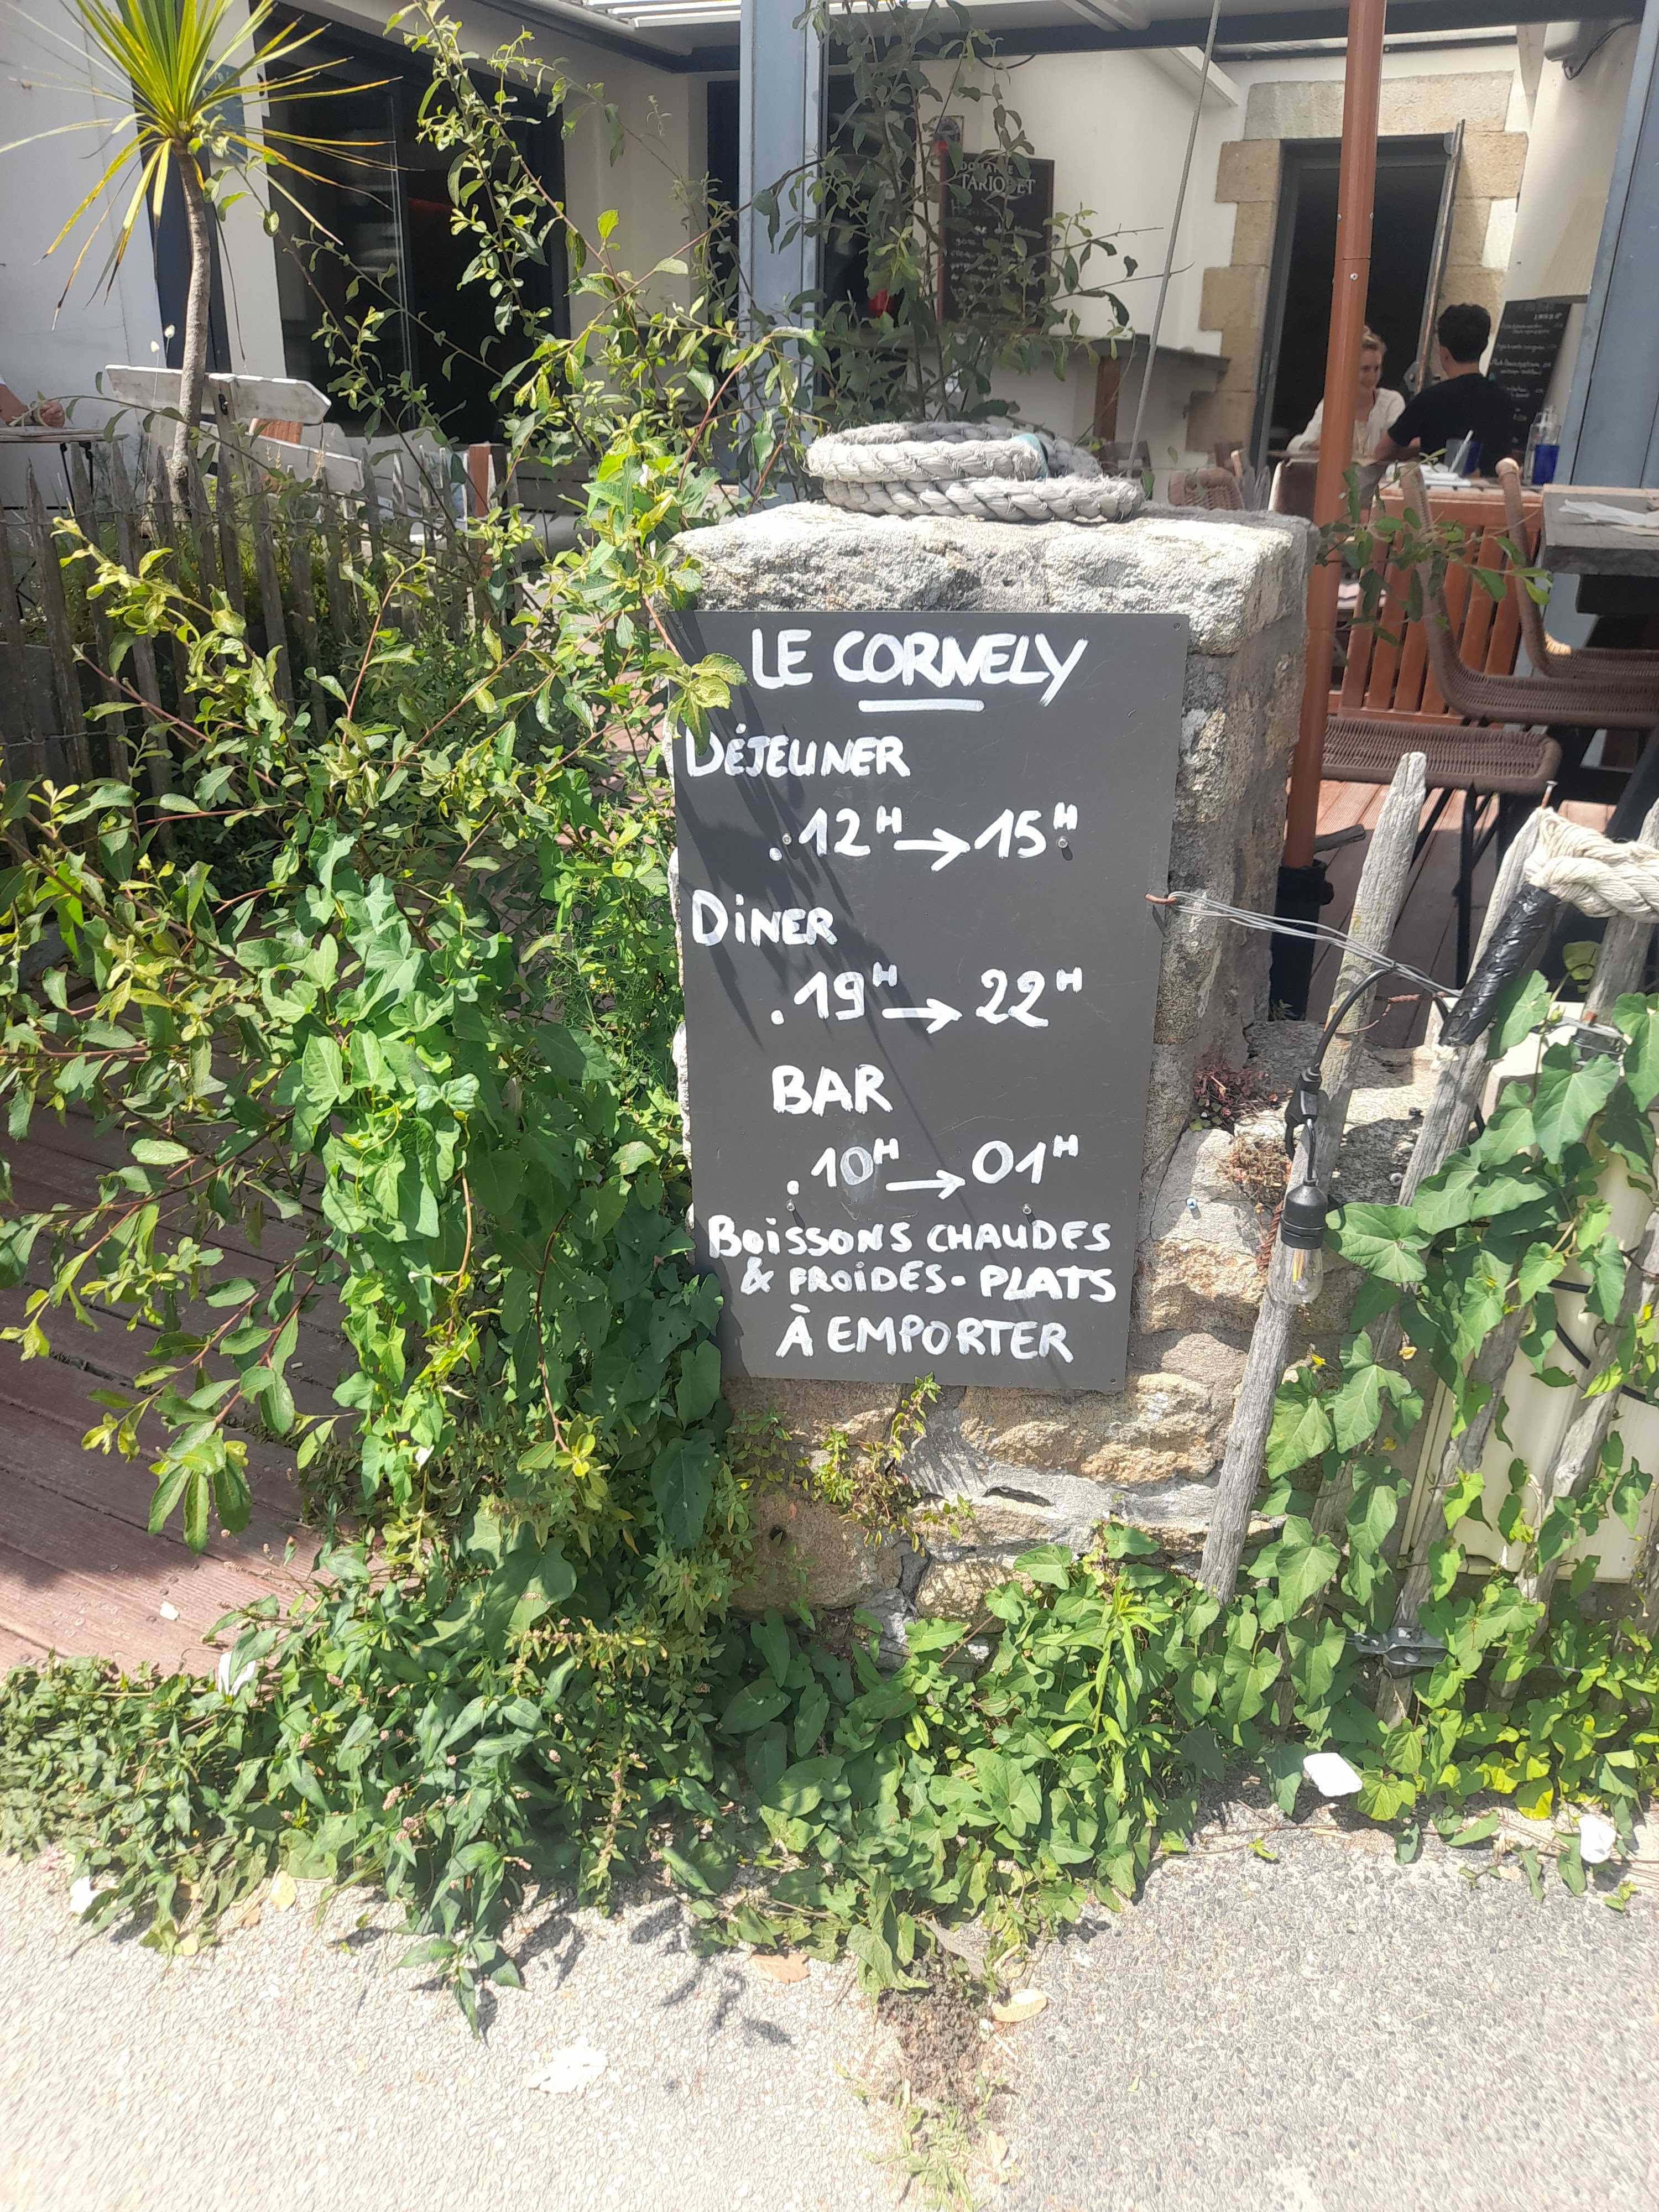 LE CORNELY
DÉJEUNER
. 12H → 15H
DiNER
. 19H → 22H
BAR
. 10H → 01H
BOiSSONS CHAUDES
& FROiDES - PLATS
À EMPORTER
TARIQUET